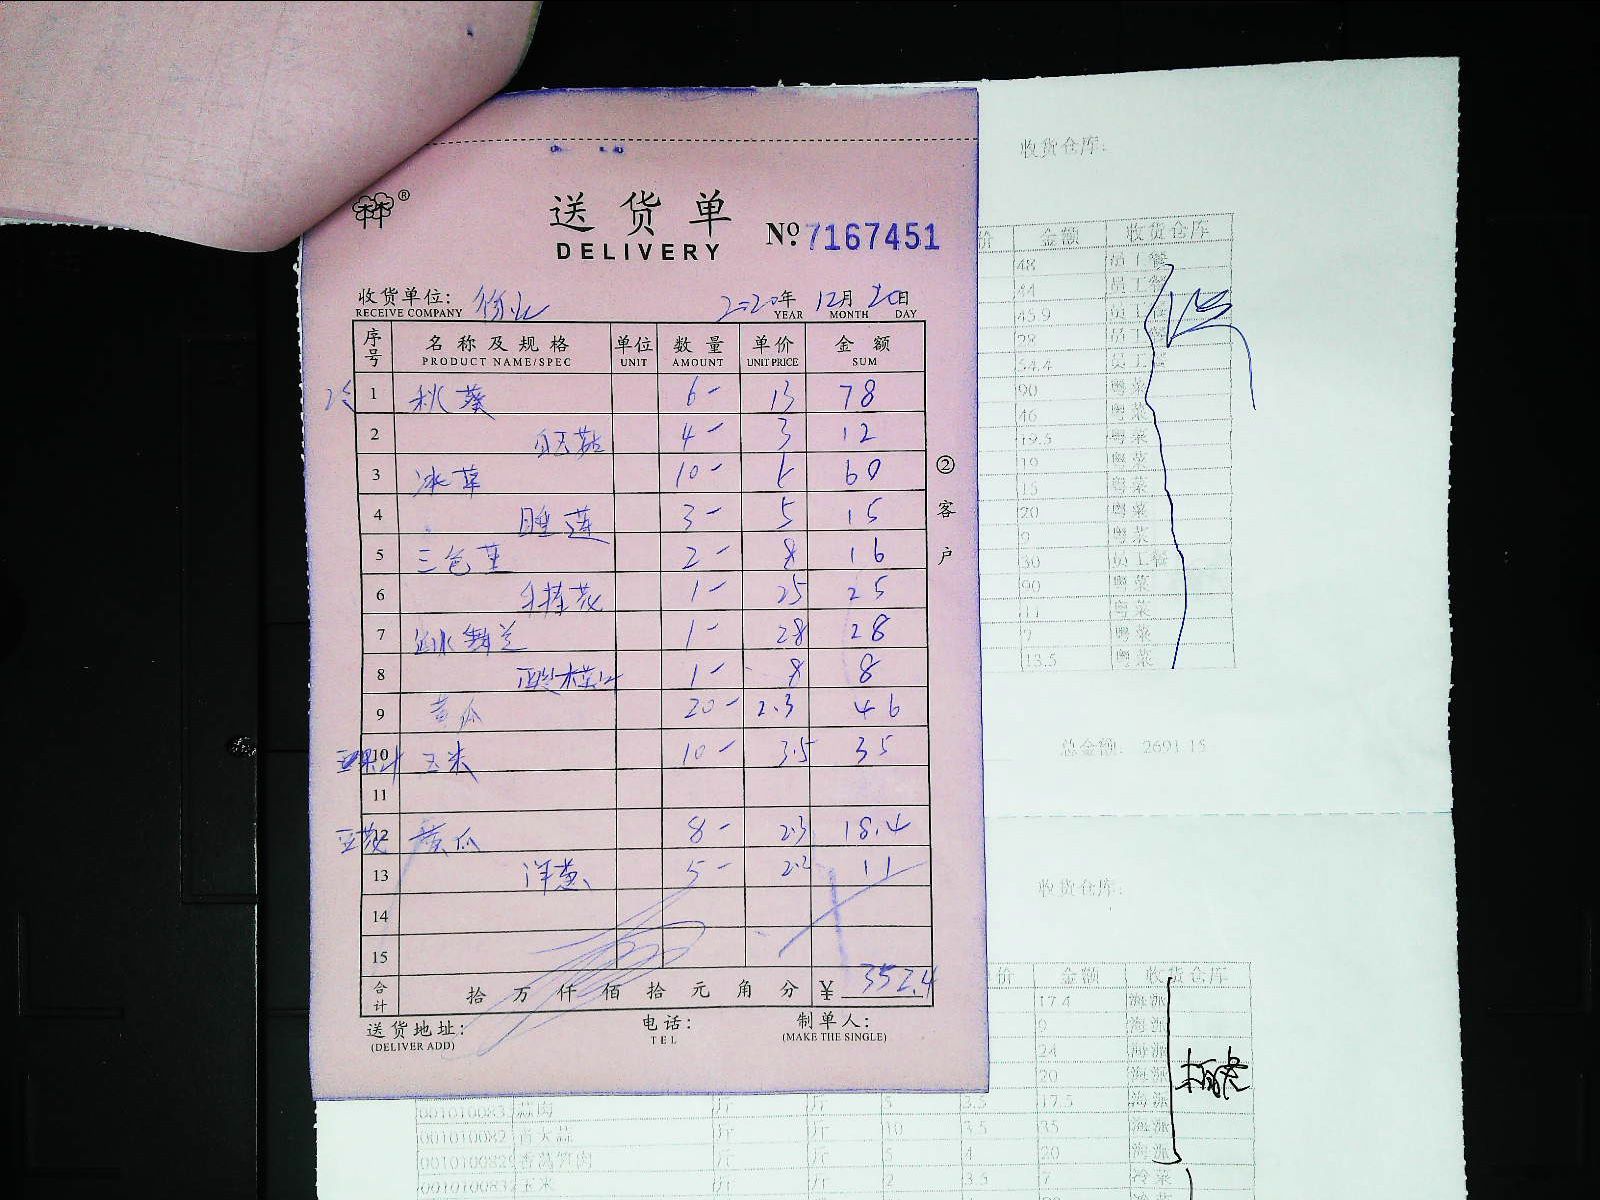 送货单
DELIVERY
№ 7167451
收货单位:
RECEIVE COMPANY
2020年 12月 20日
YEAR MONTH DAY
序号 名称及规格 单位 数量 单价 金额
PRODUCT NAME/SPEC UNIT AMOUNT UNIT PRICE SUM
冷 1 秋葵 6- 13 78
2 4- 3 12
3 冰草 10- 6 60
4 睡莲 3- 5 15
5 三色堇 2- 8 16
6 1- 25 25
7 1- 28 28
8 1- 8 8
9 黄瓜 20- 2.3 46
10 玉米 10- 3.5 35
11
12 黄瓜 8- 2.3 18.4
13 洋葱 5- 2.2 11
14
15
合计 拾 万 仟 佰 拾 元 角 分 ¥ 352.4
送货地址: 电话: 制单人:
(DELIVER ADD) TEL (MAKE THE SINGLE)
② 客户
收货仓库:
价 金额 收货仓库
48 员工餐
44 员工餐
45.9 员工餐
28 员工餐
54.4 员工餐
90 粤菜
46 粤菜
19.5 粤菜
19 粤菜
15 粤菜
20 粤菜
9 粤菜
30 员工餐
90 粤菜
11 粤菜
7 粤菜
13.5 粤菜
总金额: 2691.15
收货仓库:
价 金额 收货仓库
17.4 海派
9 海派
24 海派
20 海派
蒜肉 斤 斤 5 3.5 17.5 海派
斤 斤 10 3.5 35 海派
斤 斤 5 4 20 海派
玉米 斤 斤 2 3.5 7 冷菜